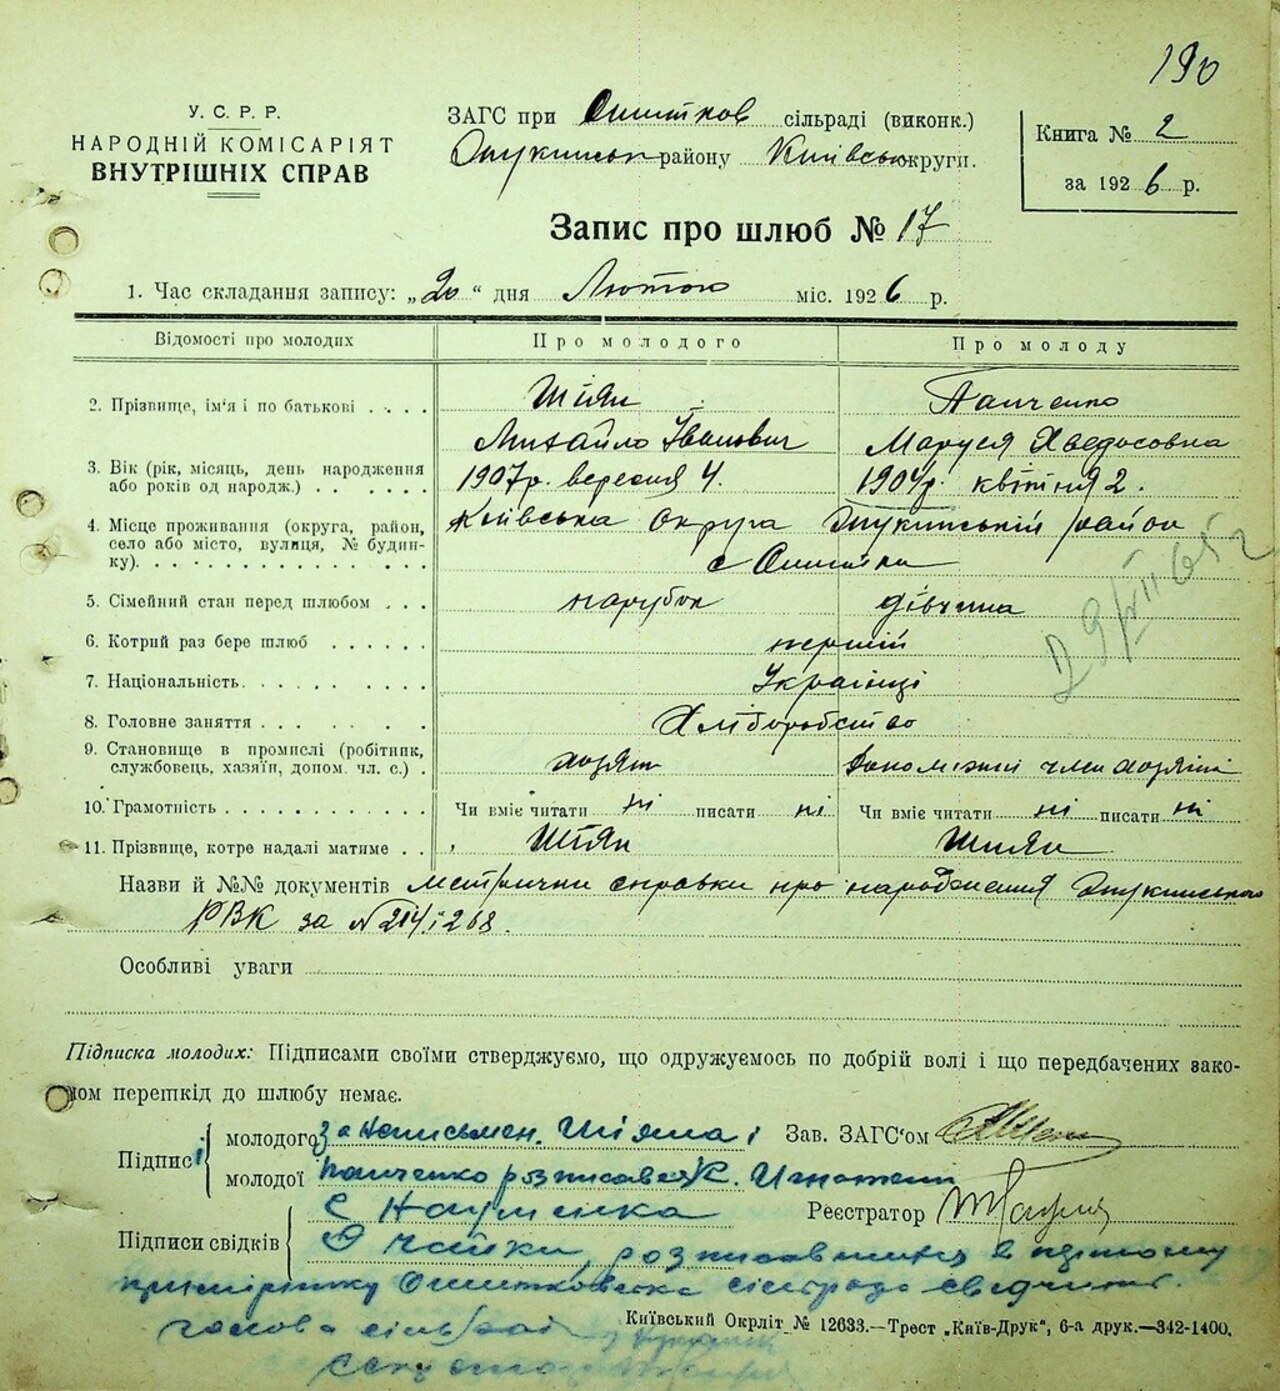 190
У. С. Р. Р.
НАРОДНІЙ КОМІСАРІЯТ
ВНУТРІШНІХ СПРАВ
ЗАГС при Ошитков сільраді (виконк.)
району Київсько округи.
Книга № 2
за 1926 р.
Запис про шлюб № 17
1. Час складання запису: „20“ дня Лютого міс. 1926 р.
Відомості про молодих Про молодого Про молоду
2. Прізвище, ім'я і по батькові Шіян Панченко
Михайло Іванович Маруся Хведосовна
3. Вік (рік, місяць, день народження або років од народж.) 1907р. вересня 4. 1904р. квітня 2.
4. Місце проживання (округа, район, село або місто, вулиця, № будинку) Київська округа район
с Ошитки
5. Сімейний стан перед шлюбом парубок дівчина
6. Котрий раз бере шлюб перший
7. Національність Українці
8. Головне заняття Хліборобство
9. Становище в промислі (робітник, службовець, хазяїн, допом. чл. с.) хозяін допоміжний член
10. Грамотність Чи вміє читати ні писати ні Чи вміє читати ні писати ні
11. Прізвище, котре надалі матиме Шіян Шіян
Назви й №№ документів метрични справки про народження
РВК за № 214 і 268.
Особливі уваги
Підписка молодих: Підписами своїми стверджуємо, що одружуємось по добрій волі і що передбачених зако-
ном перешкід до шлюбу немає.
Підписі
молодого за неписьмен. Шіяна і Зав. ЗАГС'ом
молодої Панченко розписався К.
Підписи свідків
С Науменка Реєстратор
розписавшихся в
сільради
голова сільради
Київський Окрліт № 12633.—Трест „Київ-Друк“, 6-а друк.—342-1400.